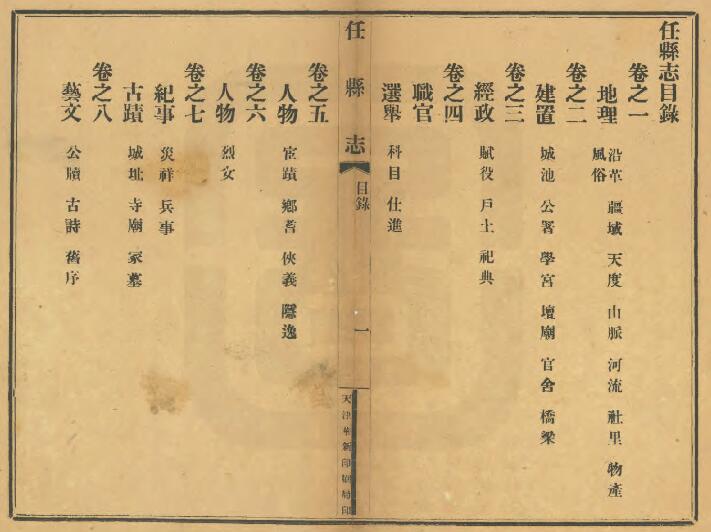 任縣志目錄
卷之一
地理 沿革 疆域 天度 山脈 河流 社里 物產
風俗
卷之二
建置 城池 公署 學宮 壇廟 官舍 橋梁
卷之三
經政 賦役 戶土 祀典
卷之四
職官
選舉 科目 仕進
任縣志 目錄 一
天津華新印刷局印
卷之五
人物 宦蹟 鄉耆 俠義 隱逸
卷之六
人物 烈女
卷之七
紀事 災祥 兵事
古蹟 城址 寺廟 冢墓
卷之八
藝文 公牘 古詩 舊序